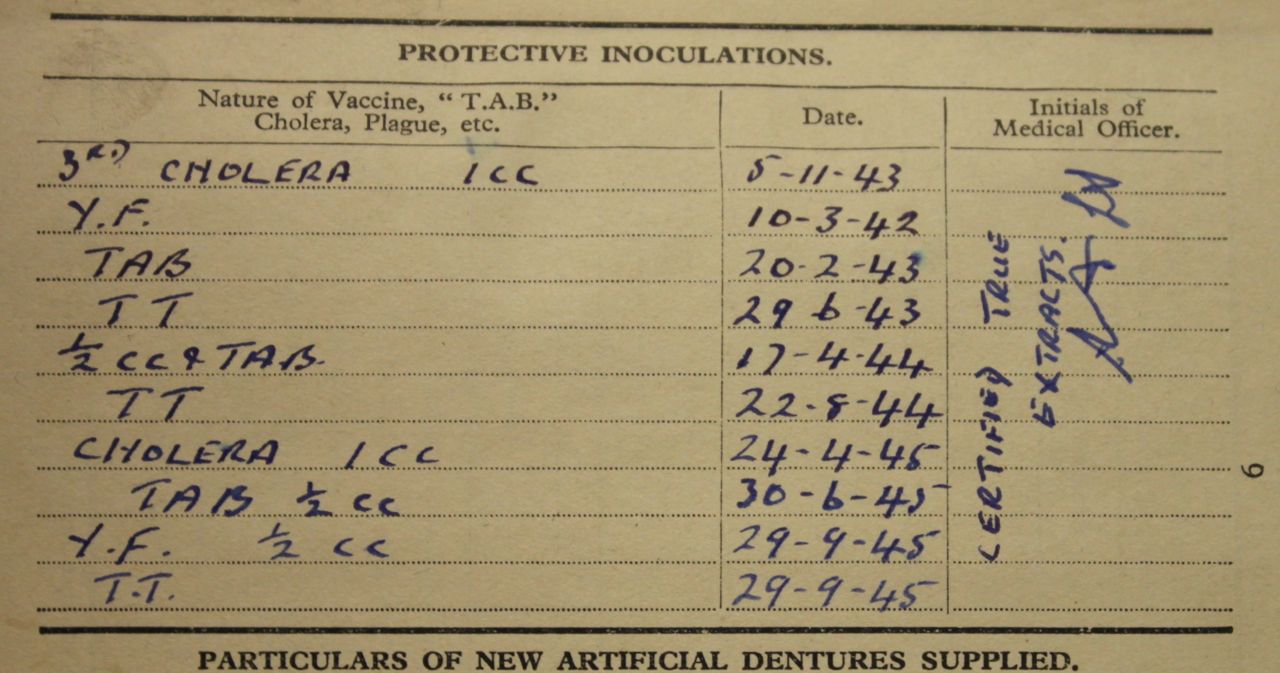 PROTECTIVE INOCULATIONS.
Nature of Vaccine, "T.A.B." Cholera, Plague, etc. Date. Initials of Medical Officer.
3RD CHOLERA 1 CC 5-11-43
Y.F. 10-3-42
TAB 20-2-43
TT 29 6-43
½ CC & TAB. 17-4-44
TT 22-8-44
CHOLERA 1 CC 24-4-45
TAB ½ CC 30-6-45
Y.F. ½ CC 29-9-45
T.T. 29-9-45
CERTIFIED TRUE
EXTRACTS.
6
PARTICULARS OF NEW ARTIFICIAL DENTURES SUPPLIED.